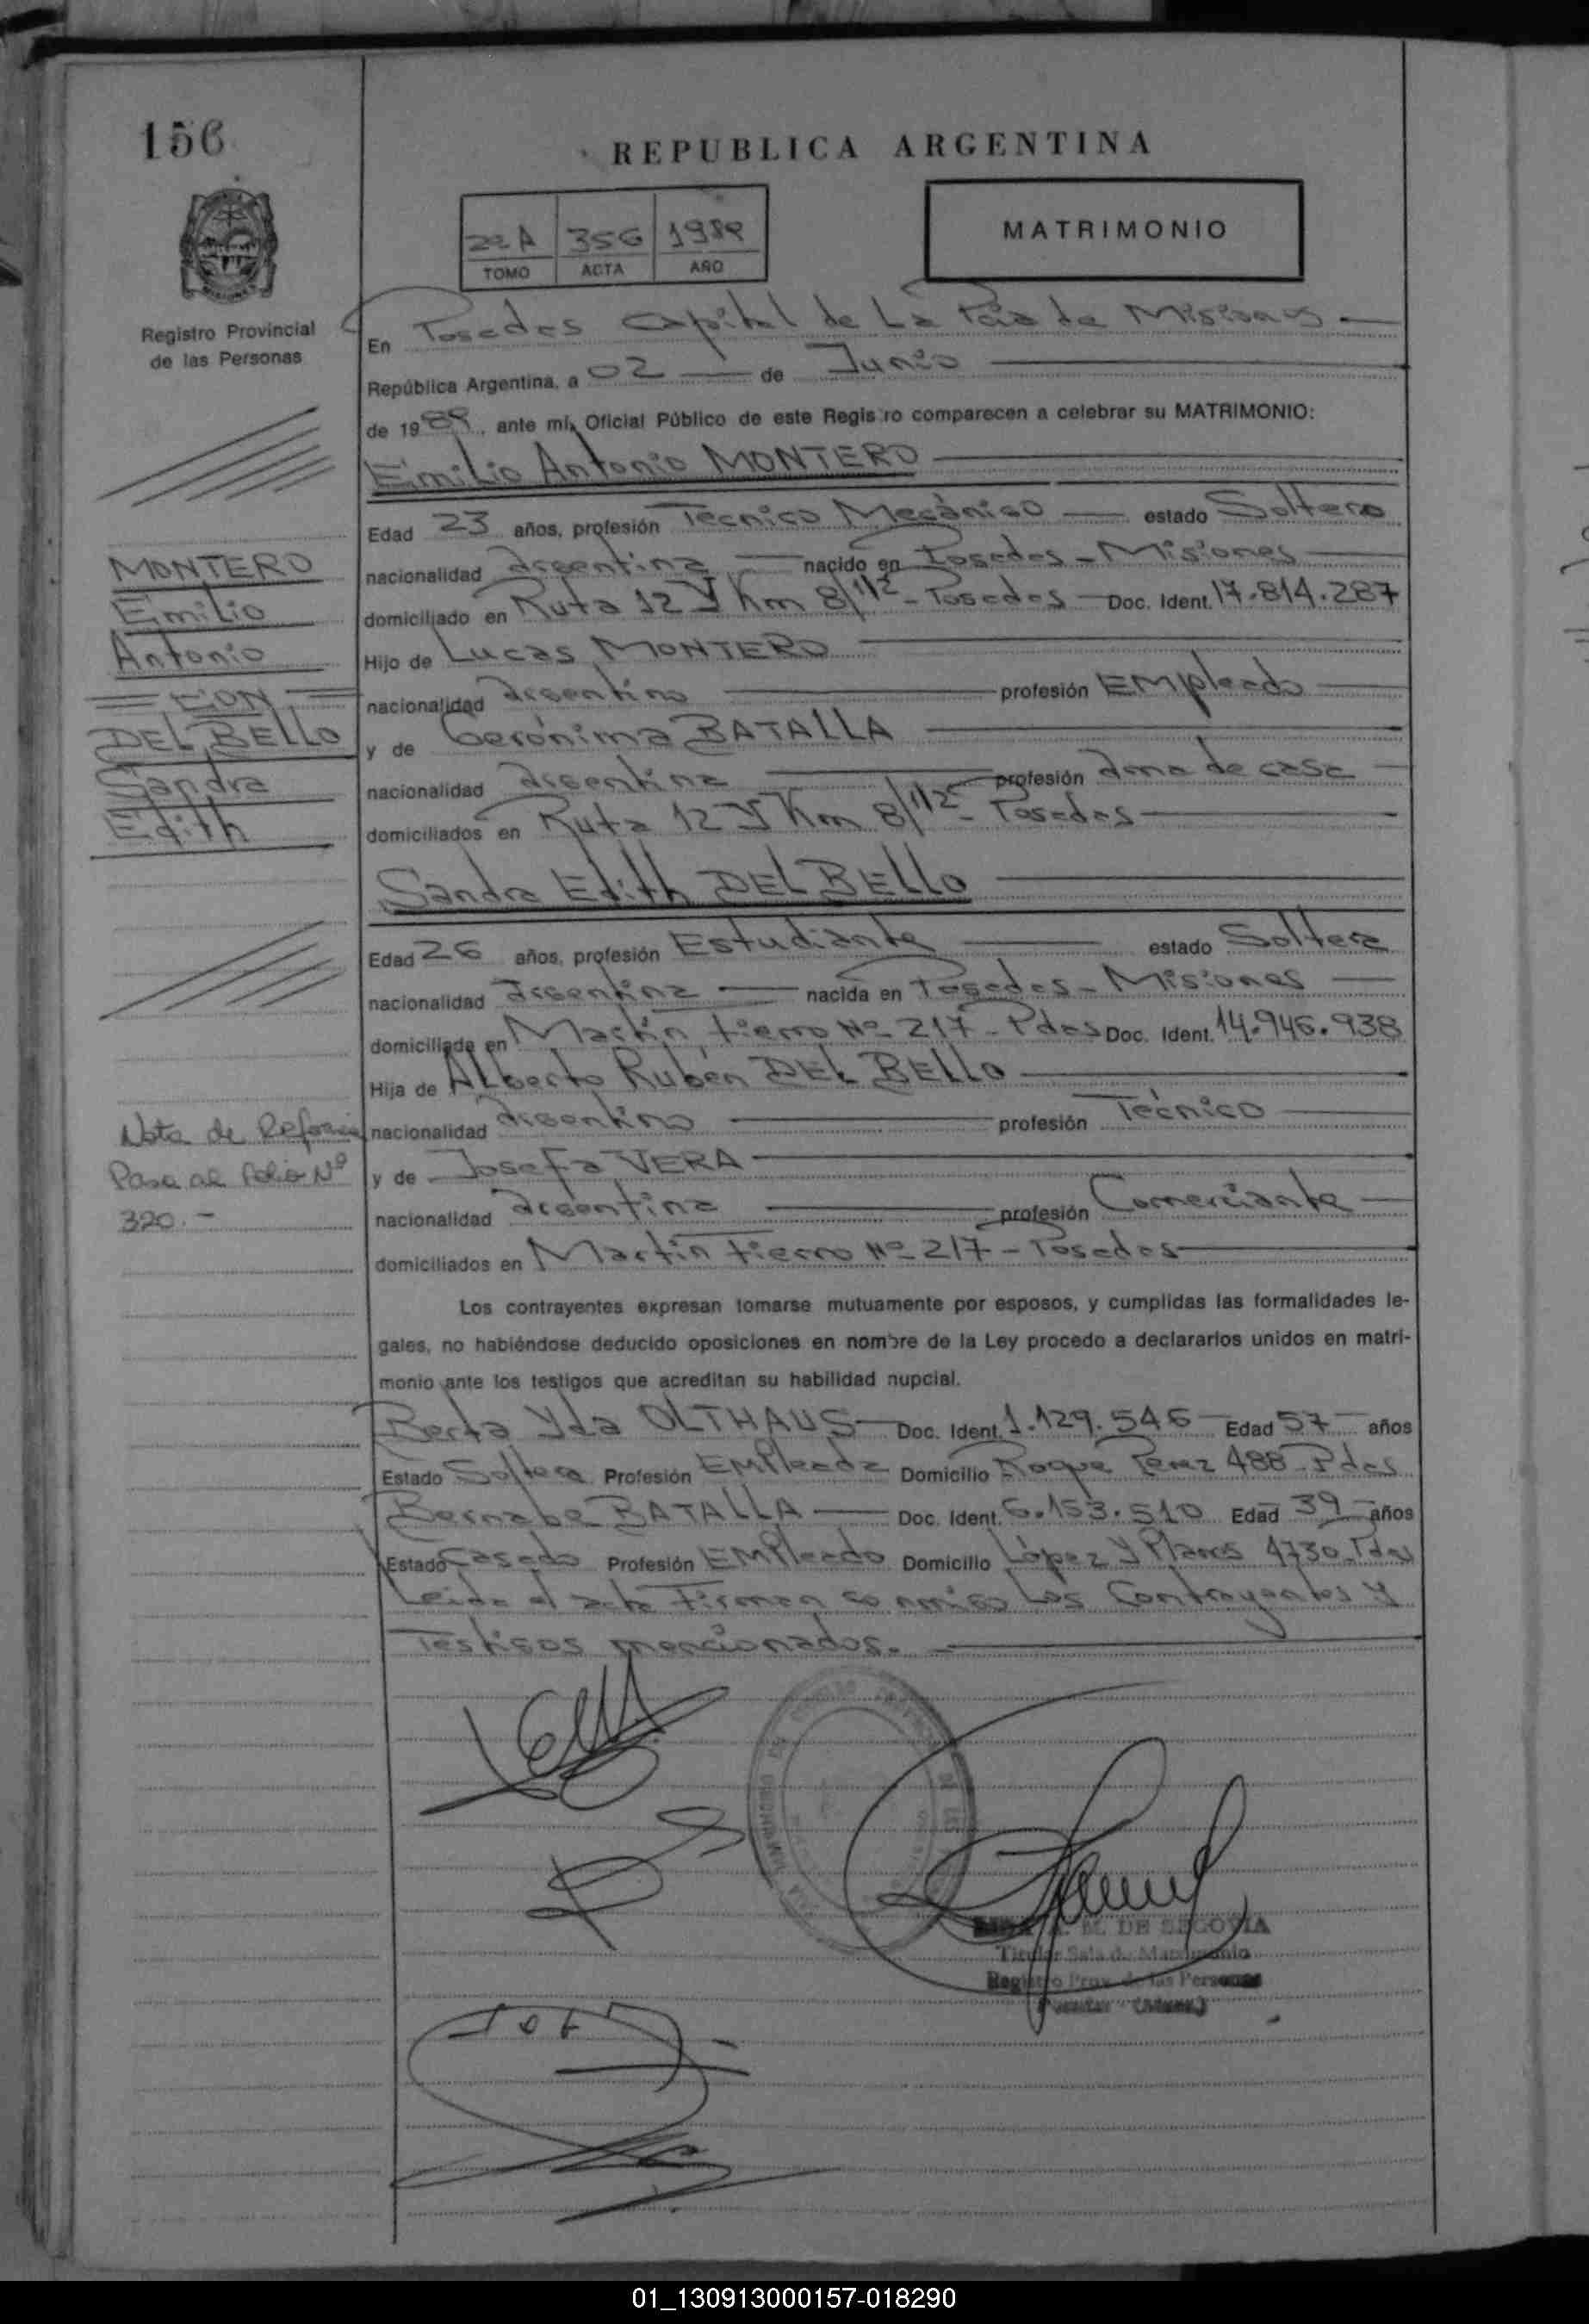 156
REPUBLICA ARGENTINA
2º A 356 1989
TOMO ACTA AÑO
MATRIMONIO
Registro Provincial
de las Personas
En Posadas Capital de La Pcia de Misiones
República Argentina, a 02 de Junio
de 1989, ante mí, Oficial Público de este Registro comparecen a celebrar su MATRIMONIO:
Emilio Antonio MONTERO
Edad 23 años, profesión Técnico Mecánico estado Soltero
nacionalidad argentina nacido en Posadas - Misiones
domiciliado en Ruta 12 y Km 8/1/2 - Posadas Doc. Ident. 17.814.287
Hijo de Lucas MONTERO
nacionalidad argentino profesión Empleado
y de Gerónima BATALLA
nacionalidad argentina profesión ama de casa
domiciliados en Ruta 12 y Km 8/1/2 - Posadas
MONTERO
Emilio
Antonio
CON
DEL BELLO
Sandra
Edith
Sandra Edith DEL BELLO
Edad 26 años, profesión Estudiante estado Soltera
nacionalidad argentina nacida en Posadas - Misiones
domiciliada en Martín Fierro Nº 217 - Pdas Doc. Ident. 14.946.938
Hija de Alberto Rubén DEL BELLO
nacionalidad argentino profesión Técnico
y de Josefa VERA
nacionalidad argentina profesión Comerciante
domiciliados en Martín Fierro Nº 217 - Posadas
Nota de
Pasa al folio Nº
320.-
Los contrayentes expresan tomarse mutuamente por esposos, y cumplidas las formalidades le-
gales, no habiéndose deducido oposiciones en nombre de la Ley procedo a declararlos unidos en matri-
monio ante los testigos que acreditan su habilidad nupcial.
Berta Yda OLTHAUS Doc. Ident. 1.129.546 Edad 57 años
Estado Soltera Profesión Empleada Domicilio Roque Perez 488 - Pdas
Bernabe BATALLA Doc. Ident. 6.153.510 Edad 39 años
Estado Casado Profesión Empleado Domicilio López y Planes 4730 - Pdas
Leída el acta Firman conmigo Los Contrayentes y
Testigos mencionados.
M. DE SEGOVIA
Titular Sala de Matrimonio
Registro Prov. de las Personas
01_130913000157-018290